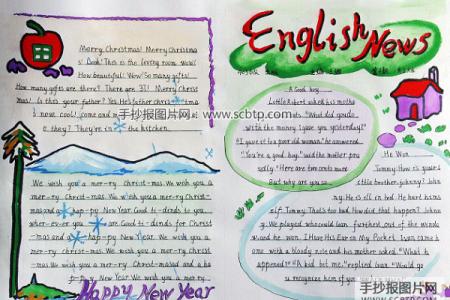 Merry Christmas! Merry Christma
s! Look! This is the living room. Wow!
How beautiful! Wow! So many gifts!
How many gifts are there? There are 33! Merry Christ
mas! Is this your father? Yes He's father christ mas
now cool! come and
e they? They're in the kitchen.
We wish you a mer-ry Christ-mas We wish you a
mer-ry Christ-mas We wish you a mer-ry Christ-
mas and a hap-py New Year Good ti-dinds to you
wher-ev-er you are Good ti-dinds for Christ
-mas and a hap-py New Year. We wish you a
mer-ry Christ-mas We wish you a mer-ry Christ-
mas We wish you a mer-ry Christ-masad and a ha
p-py New Year We wish you a mer-ry Christ-
HAPPY New Year
English News
A Good boy
Little Robert asked his mothe
cents. "What did you do
with the money I gave you yesterday?"
"I gave it to a poor old woman," he answered.
"You're a good boy," said the mother prou
dly. "Here are two cents more
But why are you so
He Won
Tommy: How is your
little brother, Johnny? John
ny: He is ill in bed. He hurt hims
elf. Tommy: That's too bad. How did that happen? Johnn
y: We played who could lean furthest out of the windo
w, and he won. I Have His Ear in My Pocket Ivan came
ome with a bloody nose and his mother asked, "What h
appened?" "A kid bit me," replied Ivan. "Would yo
u recognize him if you
手抄报图片网 www.scbtp.com 手抄报图片网
手抄报图片网
www.scbtp.com